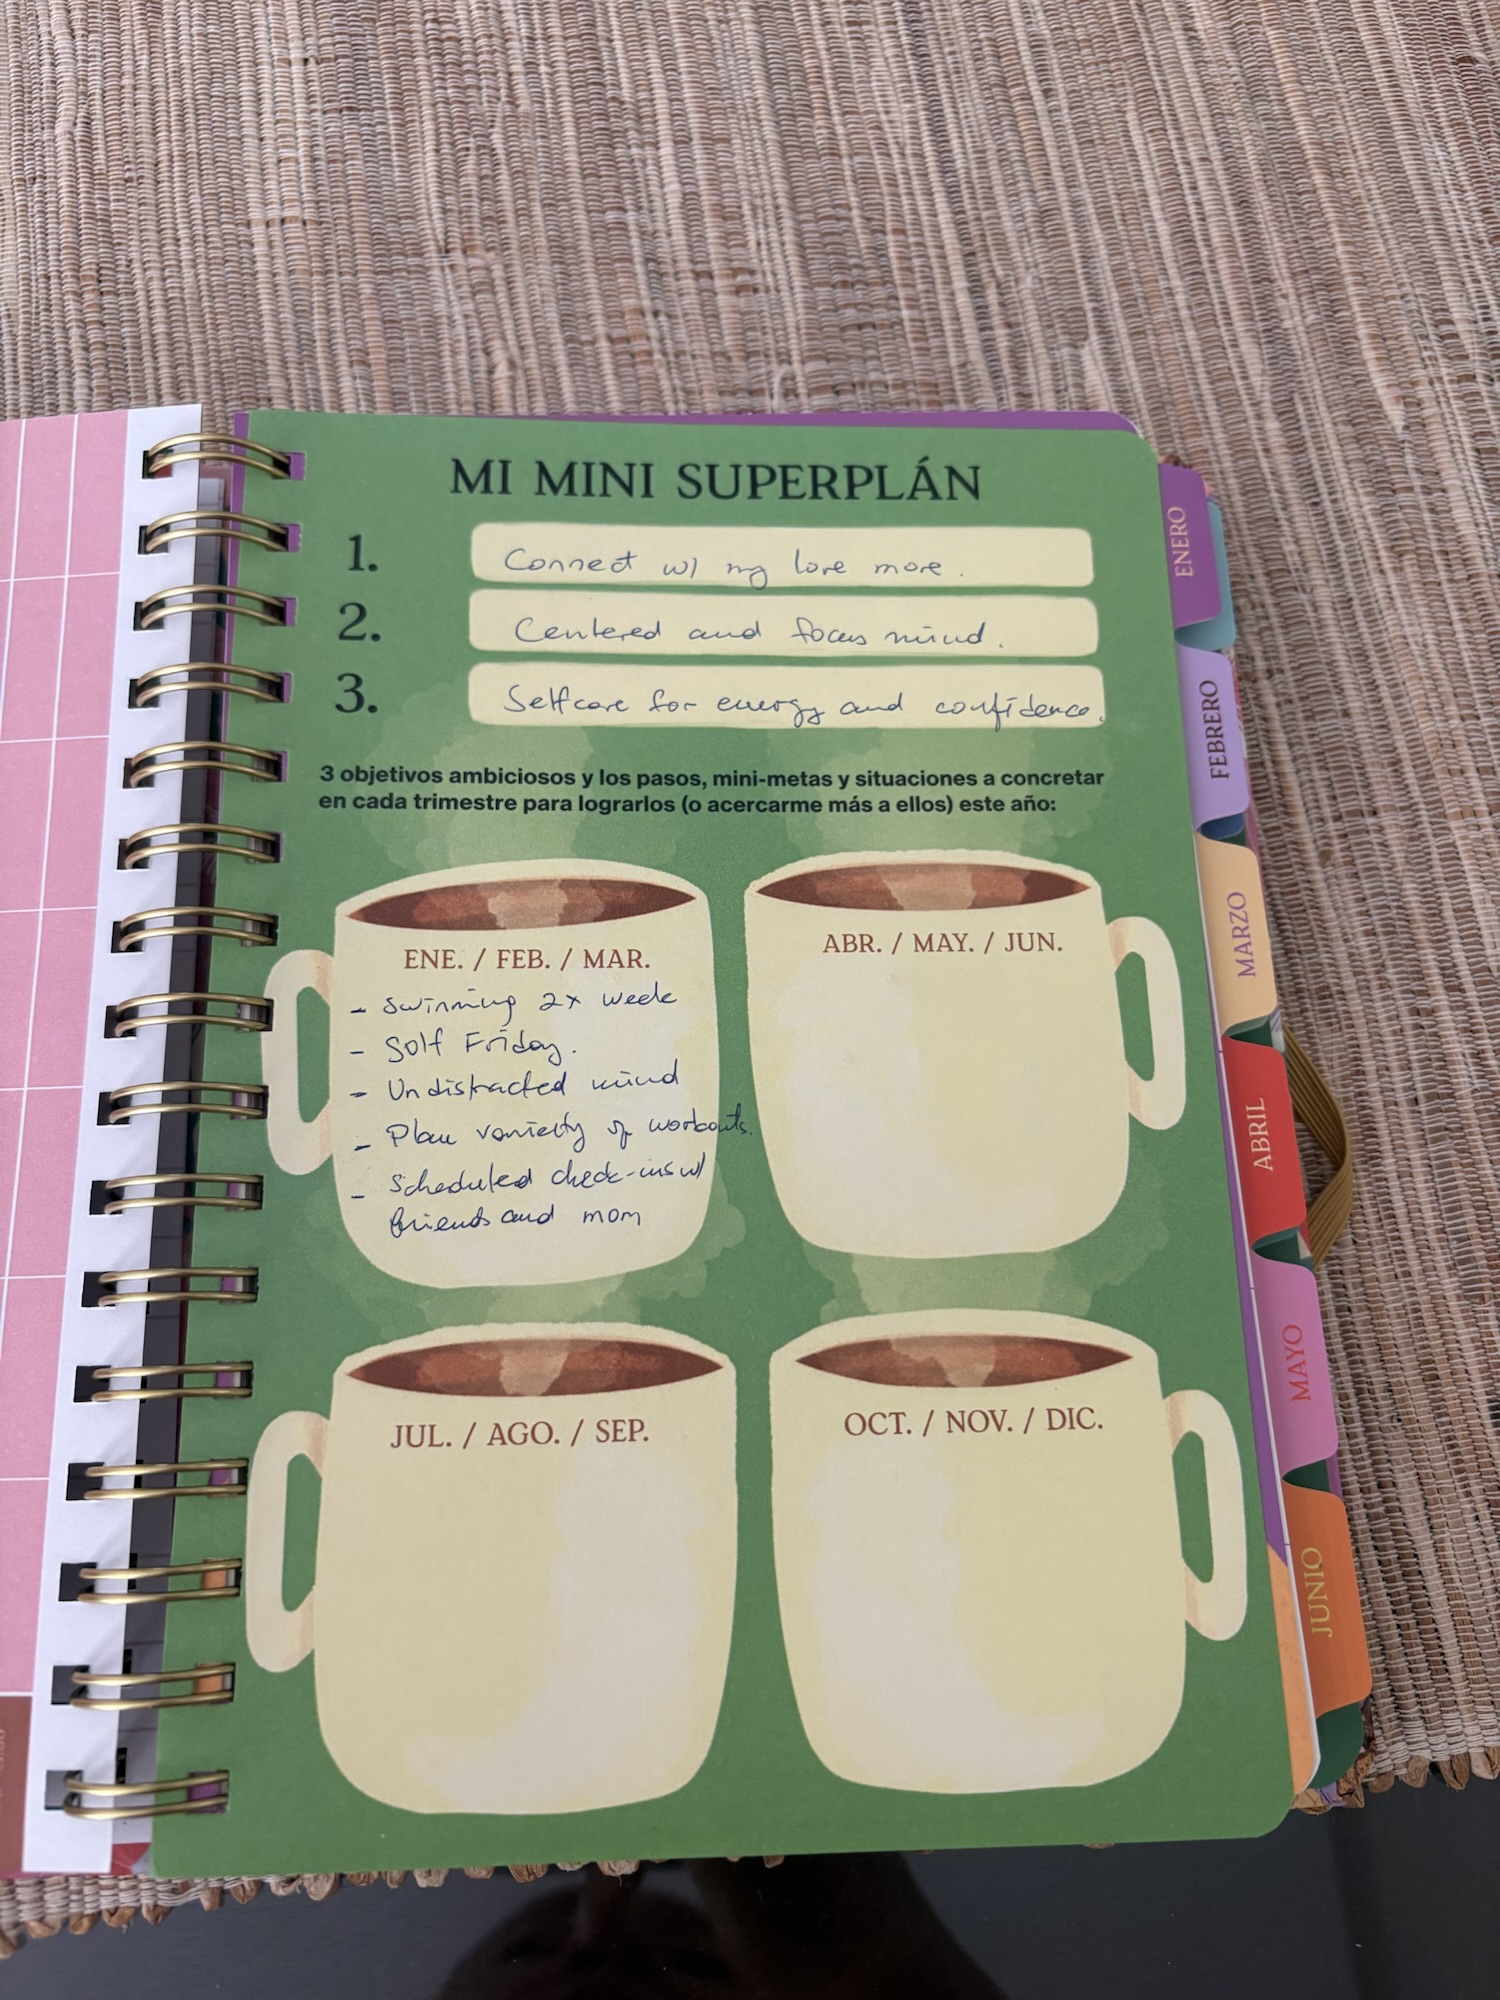 MI MINI SUPERPLÁN
1. Connect w/ my love more.
2. Centered and focus mind.
3. Selfcare for energy and confidence.
3 objetivos ambiciosos y los pasos, mini-metas y situaciones a concretar
en cada trimestre para lograrlos (o acercarme más a ellos) este año:
ENE. / FEB. / MAR.
- Swimming 2x week
- Golf Friday.
- Undistracted mind
- Plan variety of workouts.
- Scheduled check-ins w/
friends and mom
ABR. / MAY. / JUN.
JUL. / AGO. / SEP.
OCT. / NOV. / DIC.
ENERO
FEBRERO
MARZO
ABRIL
MAYO
JUNIO